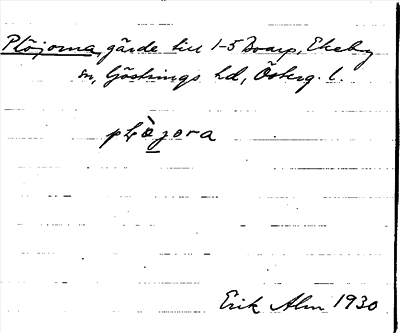 Plöjorna, gärde till 1-5 Boarp, Ekeby
sn, Göstrings hd, Österg. l.
plòjora
Erik Alm 1930